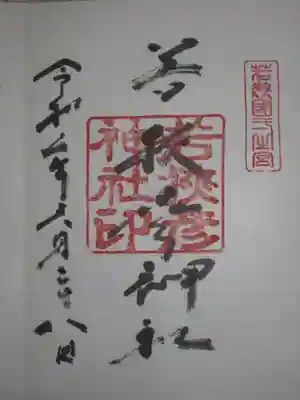 若狹國一之宮
若狭彦神社
若狹彦
神社印
令和二年六月二十八日